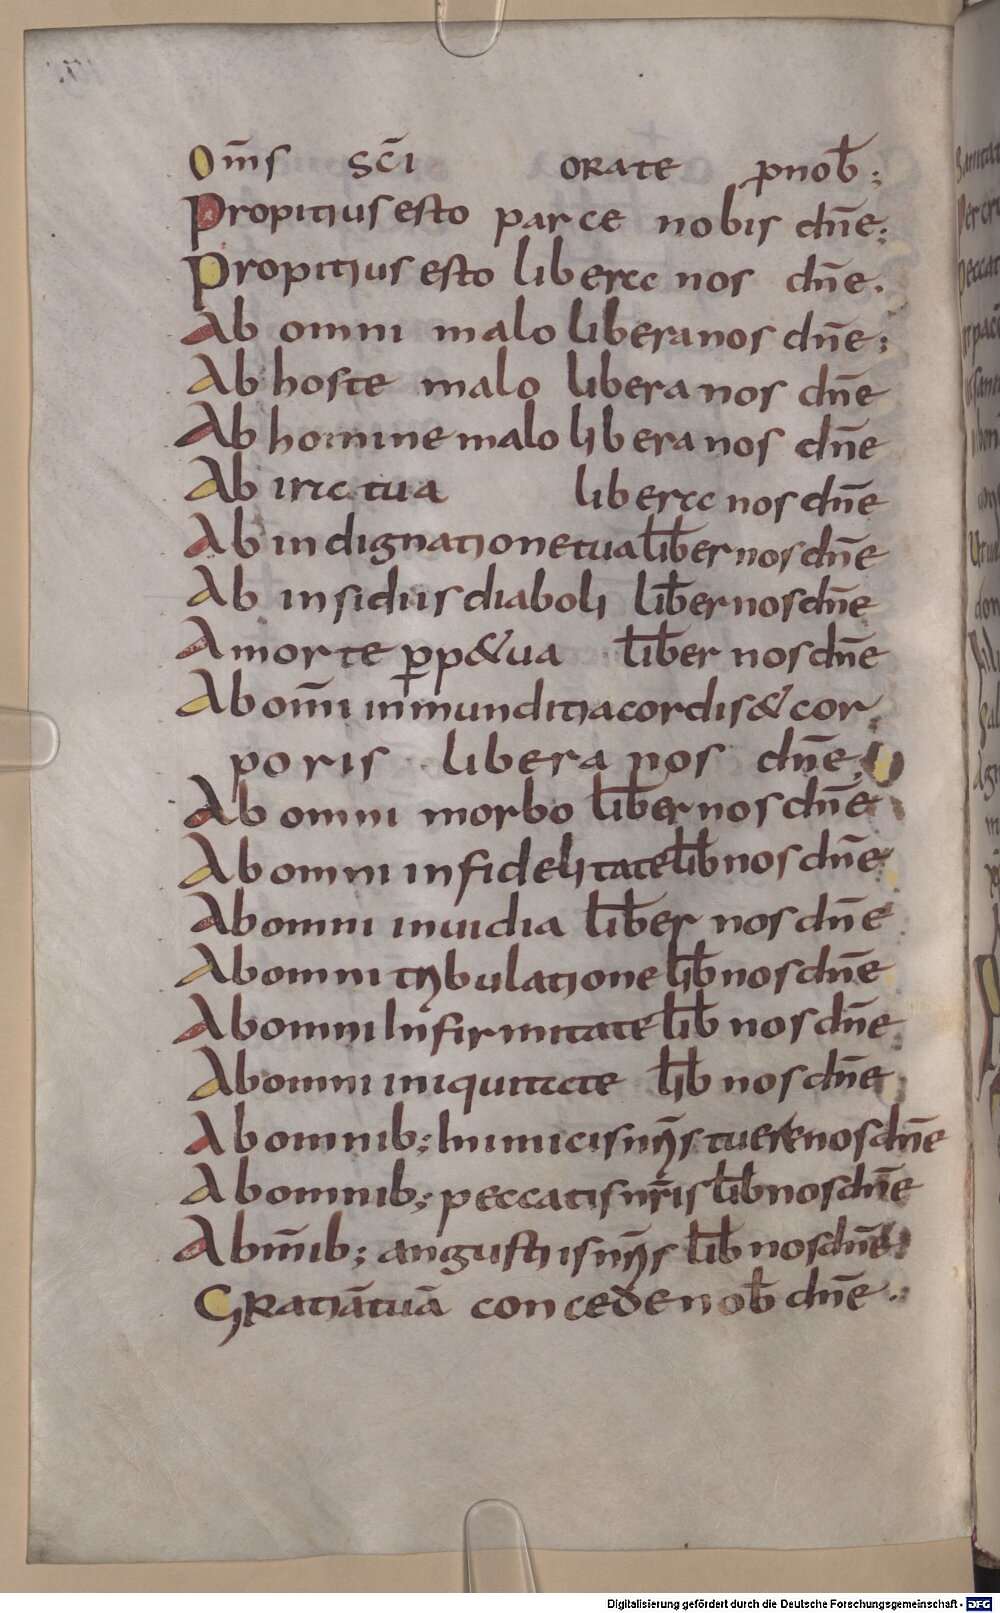 Om̄s sc̄i orate ꝓnob̄;
Propitius esto parce nobis dn̄e;
Propitius esto libera nos dn̄e.
Ab omni malo libera nos dn̄e;
Ab hoste malo libera nos dn̄e
Ab homine malo libera nos dn̄e
Ab ira tua libera nos dn̄e
Ab indignatione tua lib̄er nos dn̄e
Ab insidiis diaboli lib̄er nos dn̄e
A morte ꝑp&ua lib̄er nos dn̄e
Ab om̄i inmunditia cordis & cor
poris libera nos dn̄e;
Ab omni morbo lib̄er nos dn̄e
Ab omni infidelitate lib̄ nos dn̄e
Ab omni inuidia lib̄er nos dn̄e
Ab omni tribulatione lib̄ nos dn̄e
Ab omni Infirmitate lib̄ nos dn̄e
Ab omni iniquitate lib̄ nos dn̄e
Ab omnib; Inimicis nr̄is tuere nos dn̄e
Ab omnib; peccatis nr̄is lib̄ nos dn̄e
Ab m̄ib; angustiis nr̄is lib̄ nos dn̄e
Gratiā tuā concede nob̄ dn̄e.
Digitalisierung gefördert durch die Deutsche Forschungsgemeinschaft - DFG